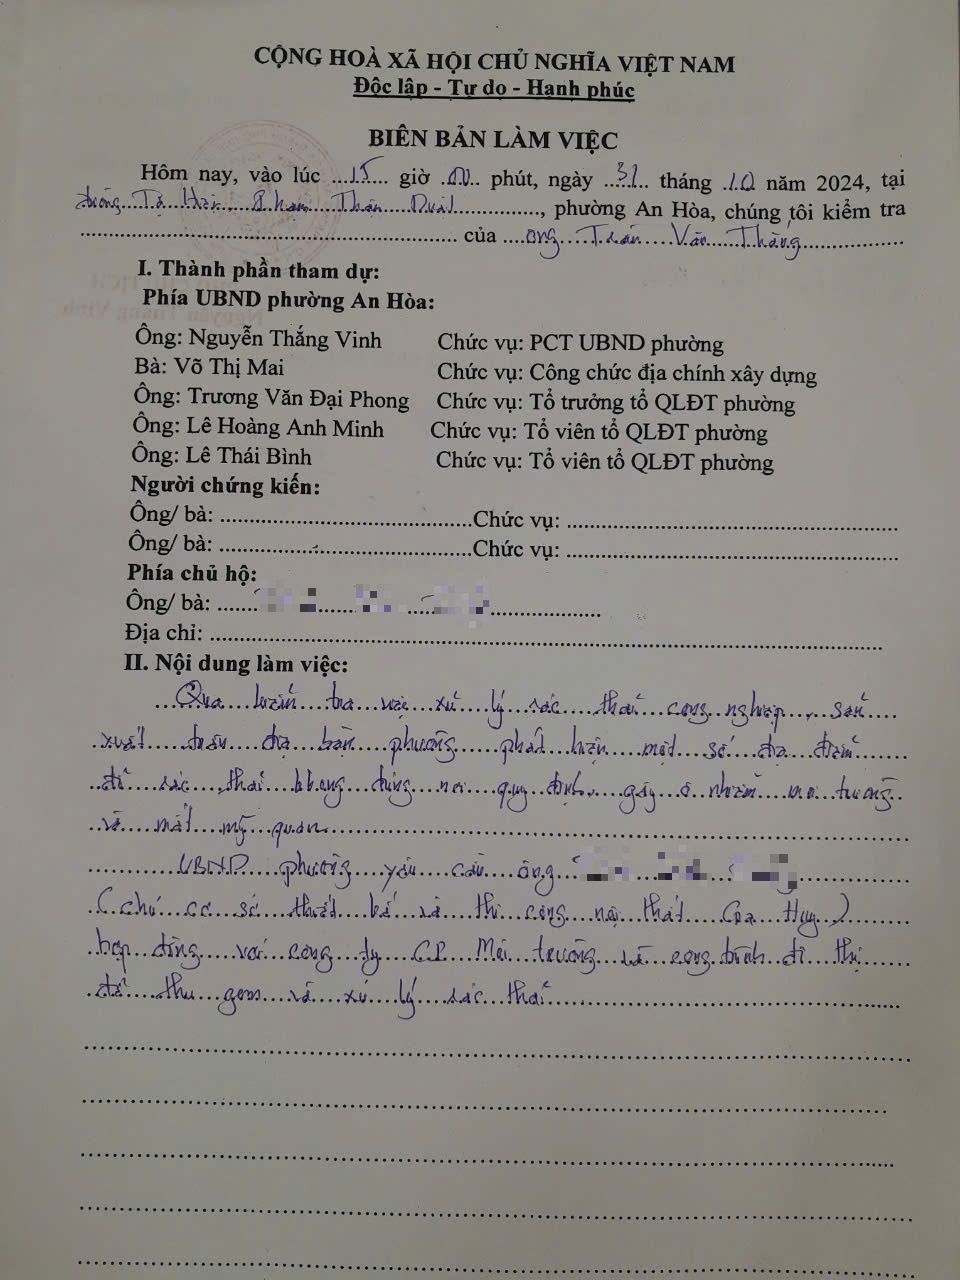 CỘNG HOÀ XÃ HỘI CHỦ NGHĨA VIỆT NAM
Độc lập - Tự do - Hạnh phúc
BIÊN BẢN LÀM VIỆC
Hôm nay, vào lúc ....15.... giờ .00.. phút, ngày ..31.. tháng .10 năm 2024, tại
đường Tạ Hiện, Phạm Thận Duật..............., phường An Hòa, chúng tôi kiểm tra
.................................................................. của ...ông....Trần....Văn...Thắng.................
I. Thành phần tham dự:
Phía UBND phường An Hòa:
Ông: Nguyễn Thắng Vinh Chức vụ: PCT UBND phường
Bà: Võ Thị Mai Chức vụ: Công chức địa chính xây dựng
Ông: Trương Văn Đại Phong Chức vụ: Tổ trưởng tổ QLĐT phường
Ông: Lê Hoàng Anh Minh Chức vụ: Tổ viên tổ QLĐT phường
Ông: Lê Thái Bình Chức vụ: Tổ viên tổ QLĐT phường
Người chứng kiến:
Ông/ bà: ...........................................Chức vụ: .........................................................
Ông/ bà: ...........................................Chức vụ: .........................................................
Phía chủ hộ:
Ông/ bà: .......
Địa chỉ: ...................................................................................................................
II. Nội dung làm việc:
Qua kiểm tra việc xử lý rác thải công nghiệp, sản
xuất trên địa bàn phường phát hiện một số địa điểm
để rác thải không đúng nơi quy định, gây ô nhiễm môi trường
và mất mỹ quan
UBND phường yêu cầu ông
(chủ cơ sở thiết kế và thi công nội thất Gia Huy)
hợp đồng với công ty CP Môi trường và công trình đô thị
để thu gom và xử lý rác thải